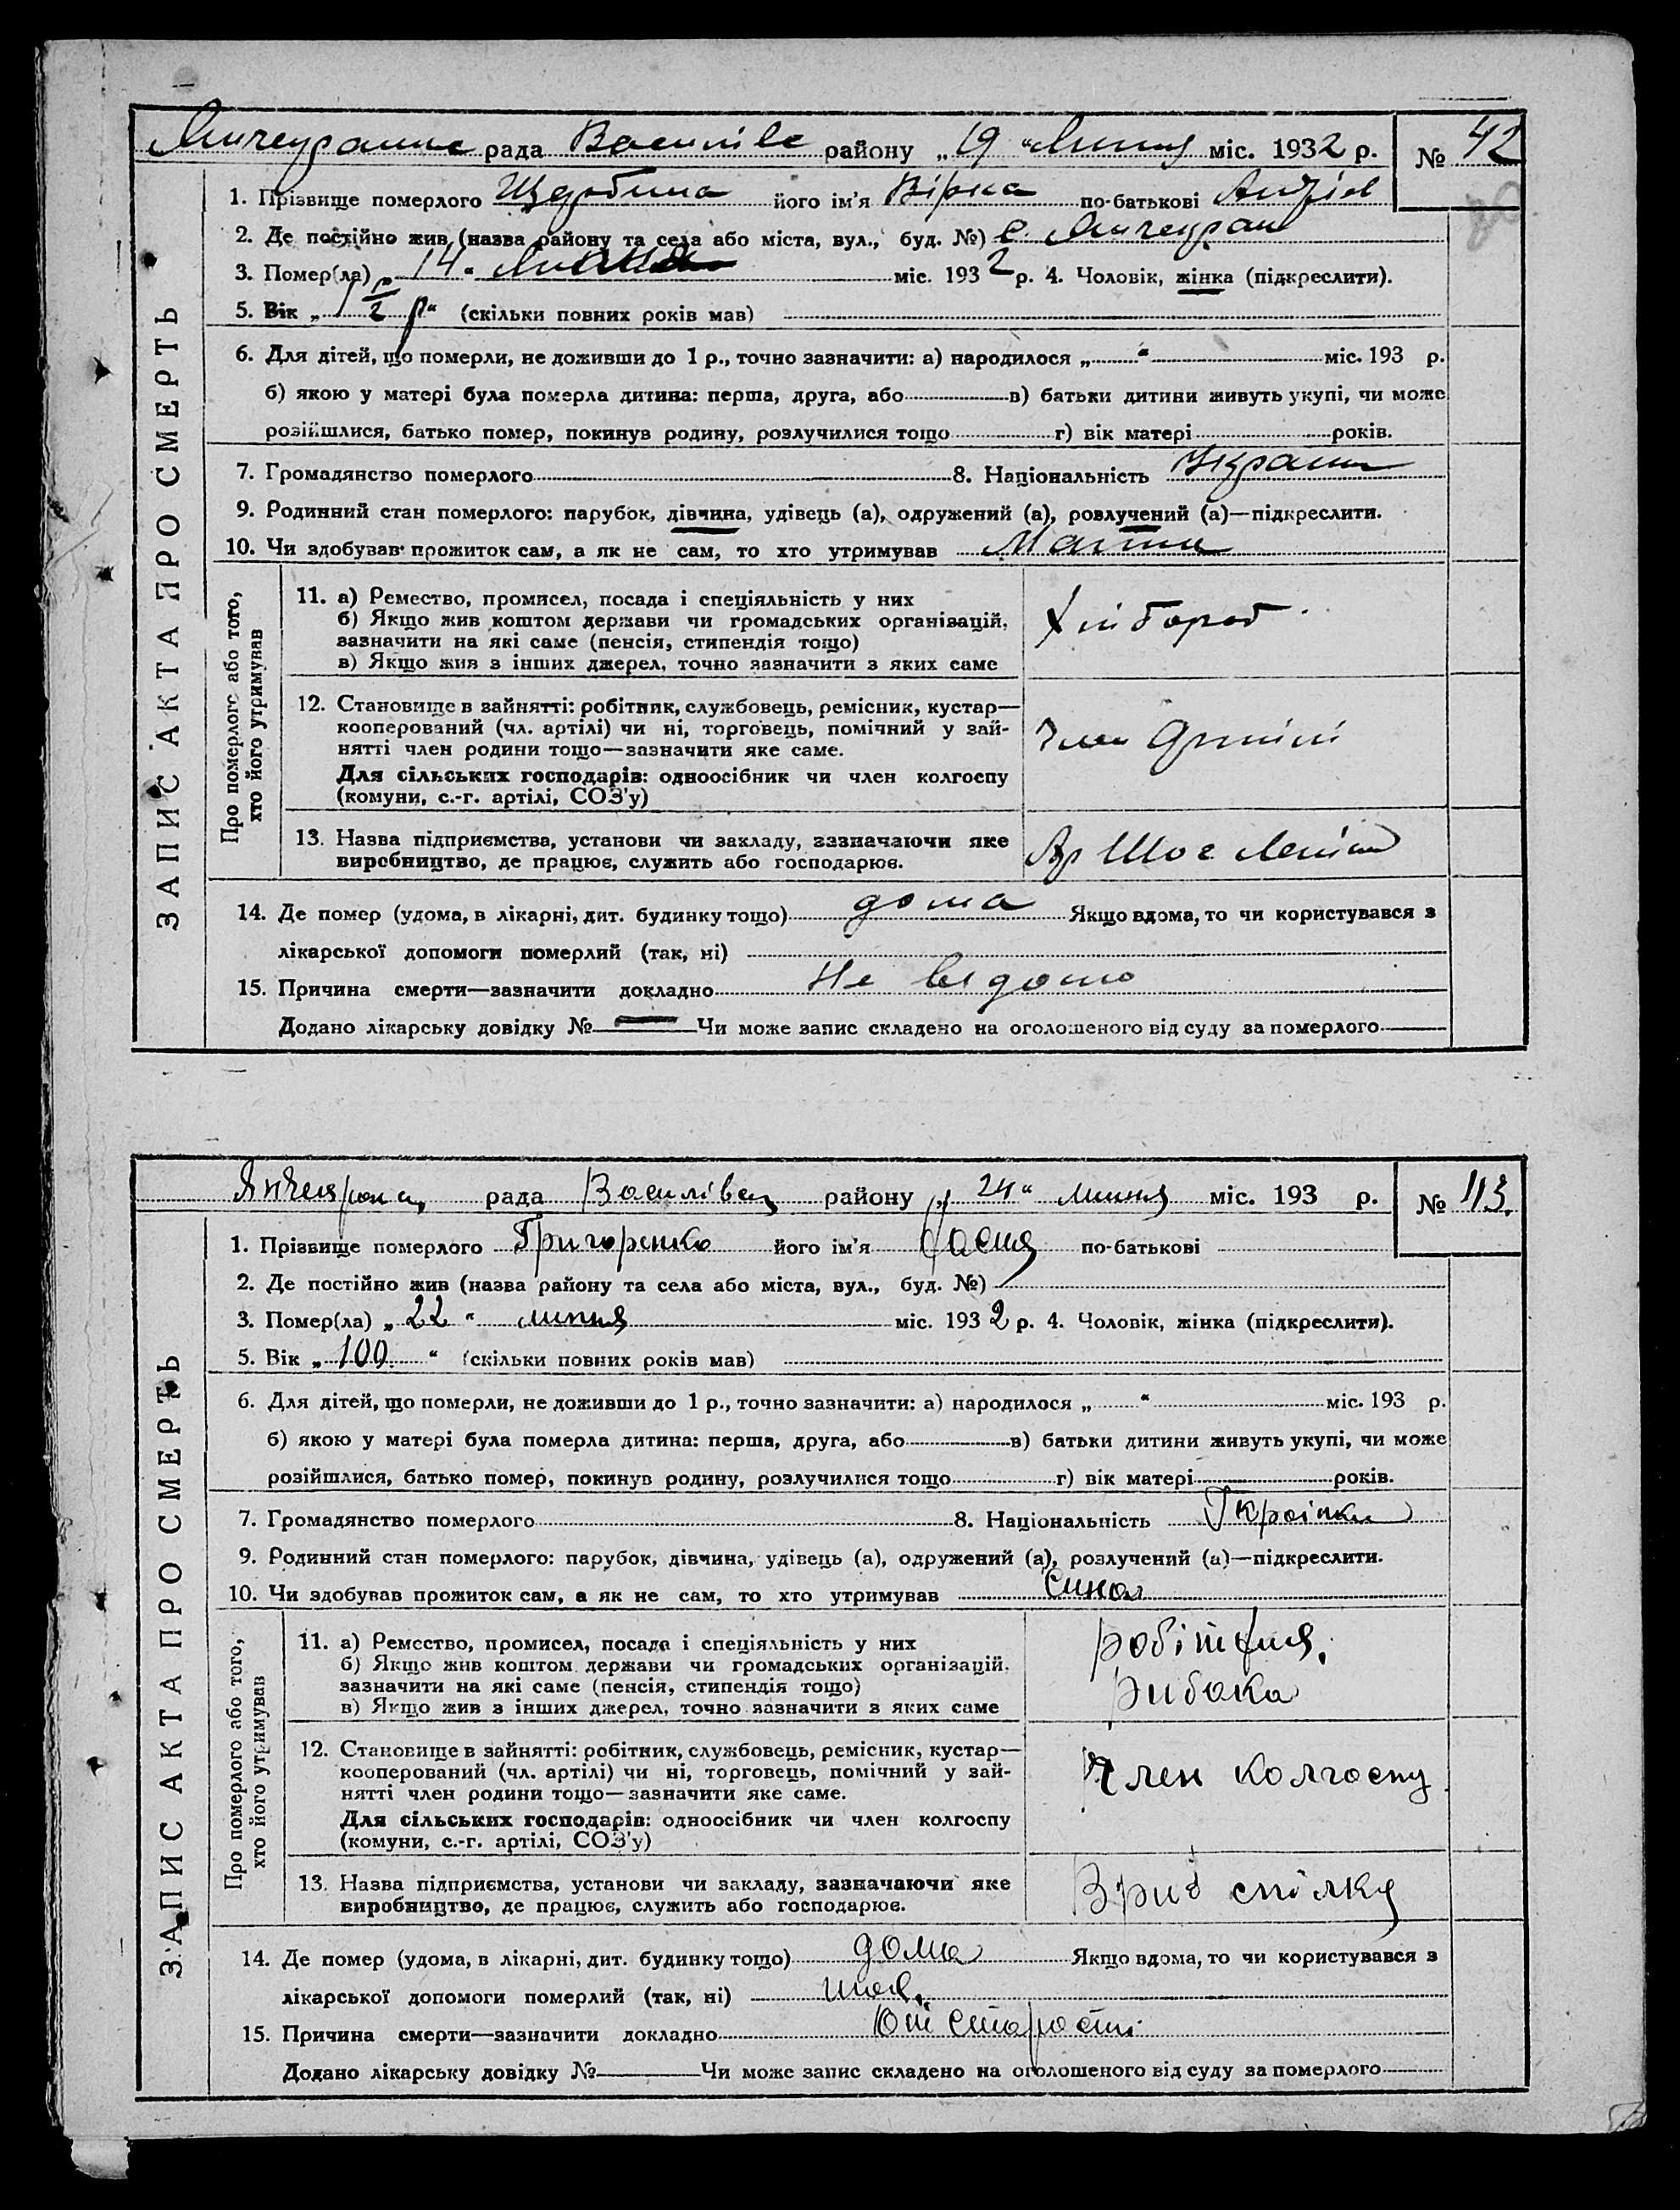 рада Василівс району „19“ Липня міс. 1932 р. № 42
ЗАПИС АКТА ПРО СМЕРТЬ
1. Прізвище померлого його ім'я Вірка по-батькові
2. Де постійно жив (назва району та села або міста, вул., буд. №) с.
3. Помер(ла) „14“ міс. 1932 р. 4. Чоловік, жінка (підкреслити).
5. Вік „1 1/2 р“ (скільки повних років мав)
6. Для дітей, що померли, не доживши до 1 р., точно зазначити: а) народилося „ “ міс. 193 р.
б) якою у матері була померла дитина: перша, друга, або в) батьки дитини живуть укупі, чи може
розійшлися, батько помер, покинув родину, розлучилися тощо г) вік матері років.
7. Громадянство померлого 8. Національність Україн
9. Родинний стан померлого: парубок, дівчина, удівець (а), одружений (а), розлучений (а)—підкреслити.
10. Чи здобував прожиток сам, а як не сам, то хто утримував Матин
Про померлого або того,
хто його утримував
11. а) Ремество, промисел, посада і спеціяльність у них
б) Якщо жив коштом держави чи громадських організацій,
зазначити на які саме (пенсія, стипендія тощо)
в) Якщо жив з інших джерел, точно зазначити з яких саме
Хлібороб
12. Становище в зайнятті: робітник, службовець, ремісник, кустар—
кооперований (чл. артілі) чи ні, торговець, помічний у зай-
нятті член родини тощо—зазначити яке саме.
Для сільських господарів: одноосібник чи член колгоспу
(комуни, с.-г. артілі, СОЗ'у)
Член Артілі
13. Назва підприємства, установи чи закладу, зазначаючи яке
виробництво, де працює, служить або господарює.
14. Де помер (удома, в лікарні, дит. будинку тощо) дома Якщо вдома, то чи користувався з
лікарської допомоги померлий (так, ні)
15. Причина смерти—зазначити докладно Не відомо
Додано лікарську довідку № — Чи може запис складено на оголошеного від суду за померлого
рада району „24“ липня міс. 193 р. № 43.
ЗАПИС АКТА ПРО СМЕРТЬ
1. Прізвище померлого Григоренко його ім'я по-батькові
2. Де постійно жив (назва району та села або міста, вул., буд. №)
3. Помер(ла) „22“ липня міс. 1932 р. 4. Чоловік, жінка (підкреслити).
5. Вік „100“ (скільки повних років мав)
6. Для дітей, що померли, не доживши до 1 р., точно зазначити: а) народилося „ “ міс. 193 р.
б) якою у матері була померла дитина: перша, друга, або в) батьки дитини живуть укупі, чи може
розійшлися, батько помер, покинув родину, розлучилися тощо г) вік матері років.
7. Громадянство померлого 8. Національність Українка
9. Родинний стан померлого: парубок, дівчина, удівець (а), одружений (а), розлучений (а)—підкреслити.
10. Чи здобував прожиток сам, а як не сам, то хто утримував
Про померлого або того,
хто його утримував
11. а) Ремество, промисел, посада і спеціяльність у них
б) Якщо жив коштом держави чи громадських організацій,
зазначити на які саме (пенсія, стипендія тощо)
в) Якщо жив з інших джерел, точно зазначити з яких саме
рибака
12. Становище в зайнятті: робітник, службовець, ремісник, кустар—
кооперований (чл. артілі) чи ні, торговець, помічний у зай-
нятті член родини тощо—зазначити яке саме.
Для сільських господарів: одноосібник чи член колгоспу
(комуни, с.-г. артілі, СОЗ'у)
Член колгоспу
13. Назва підприємства, установи чи закладу, зазначаючи яке
виробництво, де працює, служить або господарює.
В риб спілку
14. Де помер (удома, в лікарні, дит. будинку тощо) дома Якщо вдома, то чи користувався з
лікарської допомоги померлий (так, ні)
15. Причина смерти—зазначити докладно От старости
Додано лікарську довідку № Чи може запис складено на оголошеного від суду за померлого